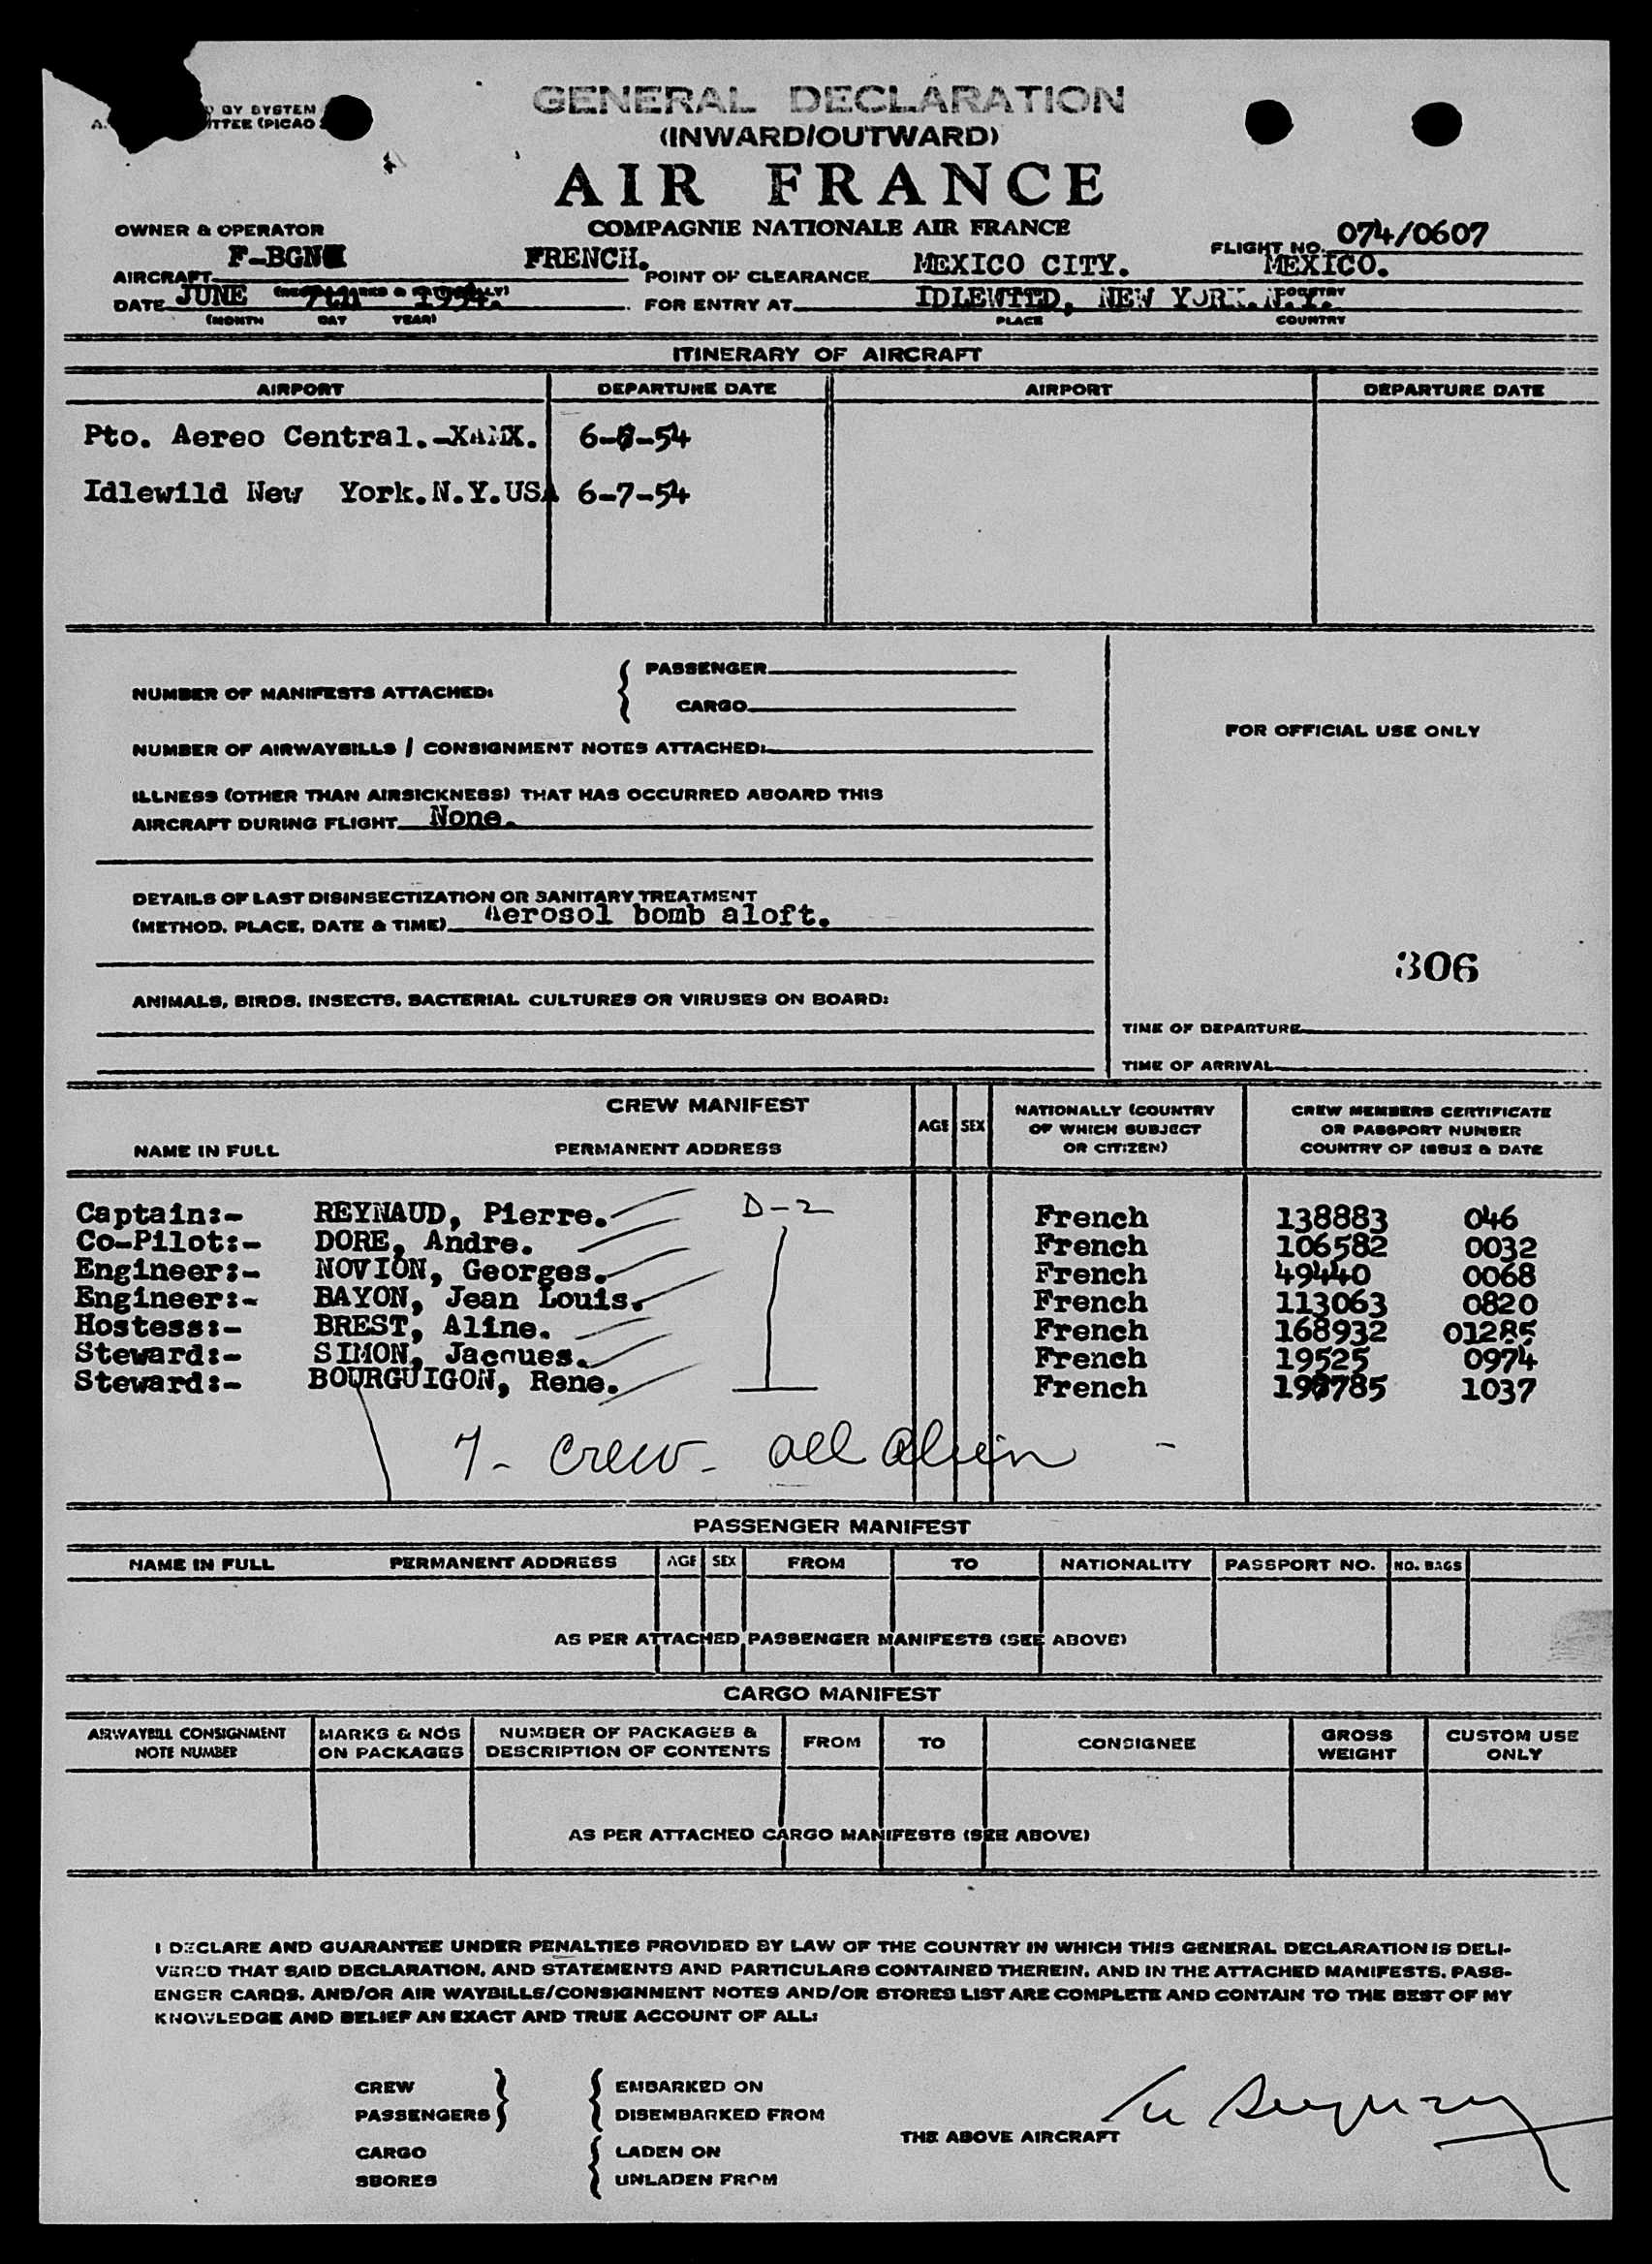 BY SYSTEM
GENERAL DECLARATION
(INWARD/OUTWARD)
AIR FRANCE
COMPAGNIE NATIONALE AIR FRANCE
OWNER & OPERATOR
FLIGHT NO. 074/0607
AIRCRAFT F-BGN FRENCH. POINT OF CLEARANCE MEXICO CITY. MEXICO.
DATE JUNE 7th 1954. FOR ENTRY AT IDLEWILD, NEW YORK. N.Y.
(MONTH DAY YEAR) PLACE COUNTRY
ITINERARY OF AIRCRAFT
AIRPORT DEPARTURE DATE AIRPORT DEPARTURE DATE
Pto. Aereo Central.-XAMX. 6- -54
Idlewild New York.N.Y.USA 6-7-54
NUMBER OF MANIFESTS ATTACHED: PASSENGER
CARGO
FOR OFFICIAL USE ONLY
NUMBER OF AIRWAYBILLS / CONSIGNMENT NOTES ATTACHED:
ILLNESS (OTHER THAN AIRSICKNESS) THAT HAS OCCURRED ABOARD THIS
AIRCRAFT DURING FLIGHT None.
DETAILS OF LAST DISINSECTIZATION OR SANITARY TREATMENT
(METHOD, PLACE, DATE & TIME) Aerosol bomb aloft.
306
ANIMALS, BIRDS, INSECTS, BACTERIAL CULTURES OR VIRUSES ON BOARD:
TIME OF DEPARTURE
TIME OF ARRIVAL
CREW MANIFEST
NAME IN FULL PERMANENT ADDRESS AGE SEX NATIONALLY (COUNTRY OF WHICH SUBJECT OR CITIZEN) CREW MEMBERS CERTIFICATE OR PASSPORT NUMBER COUNTRY OF ISSUE & DATE
Captain:- REYNAUD, Pierre. D-2 French 138883 046
Co-Pilot:- DORE, Andre. French 106582 0032
Engineer:- NOVION, Georges. French 49440 0068
Engineer:- BAYON, Jean Louis. French 113063 0820
Hostess:- BREST, Aline. French 168932 01285
Steward:- SIMON, Jacques. French 19525 0974
Steward:- BOURGUIGON, Rene. French 1037
7- crew- all alien -
PASSENGER MANIFEST
NAME IN FULL PERMANENT ADDRESS AGE SEX FROM TO NATIONALITY PASSPORT NO. NO. BAGS
AS PER ATTACHED PASSENGER MANIFESTS (SEE ABOVE)
CARGO MANIFEST
AIRWAYBILL CONSIGNMENT NOTE NUMBER MARKS & NOS ON PACKAGES NUMBER OF PACKAGES & DESCRIPTION OF CONTENTS FROM TO CONSIGNEE GROSS WEIGHT CUSTOM USE ONLY
AS PER ATTACHED CARGO MANIFESTS (SEE ABOVE)
I DECLARE AND GUARANTEE UNDER PENALTIES PROVIDED BY LAW OF THE COUNTRY IN WHICH THIS GENERAL DECLARATION IS DELI-
VERED THAT SAID DECLARATION, AND STATEMENTS AND PARTICULARS CONTAINED THEREIN, AND IN THE ATTACHED MANIFESTS, PASS-
ENGER CARDS, AND/OR AIR WAYBILLS/CONSIGNMENT NOTES AND/OR STORES LIST ARE COMPLETE AND CONTAIN TO THE BEST OF MY
KNOWLEDGE AND BELIEF AN EXACT AND TRUE ACCOUNT OF ALL:
CREW EMBARKED ON
PASSENGERS DISEMBARKED FROM
THE ABOVE AIRCRAFT
CARGO LADEN ON
SBORES UNLADEN FROM